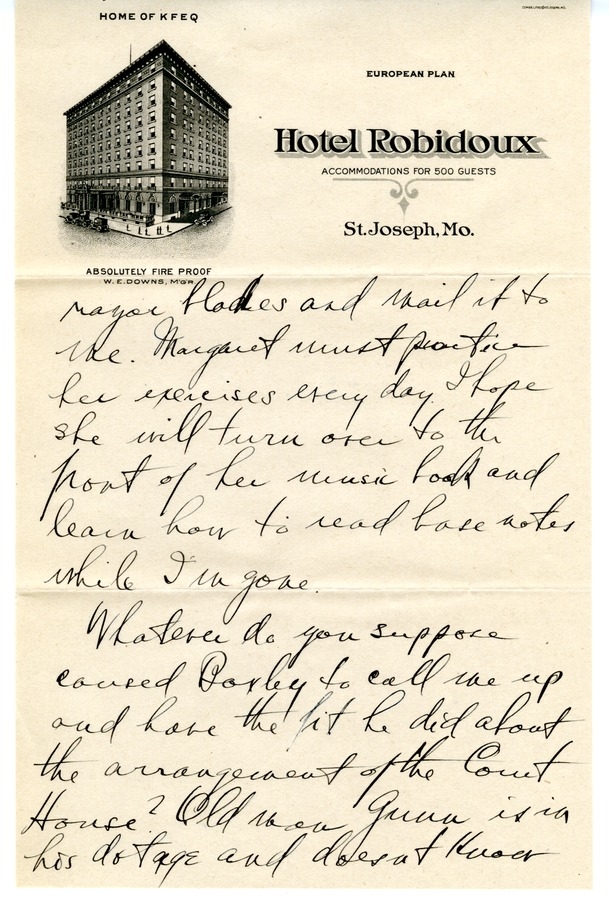 HOME OF KFEQ
EUROPEAN PLAN
Hotel Robidoux
ACCOMMODATIONS FOR 500 GUESTS
St. Joseph, Mo.
ABSOLUTELY FIRE PROOF
W. E. DOWNS, M'G'R.
razor blades and mail it to
me. Margaret must practice
her exercises every day. I hope
she will turn over to the
front of her music book and
learn how to read base notes
while I'm gone.
Whatever do you suppose
caused Boxley to call me up
and have the fit he did about
the arrangement of the Court
House? Old man Gunn is in
his dotage and doesn't know